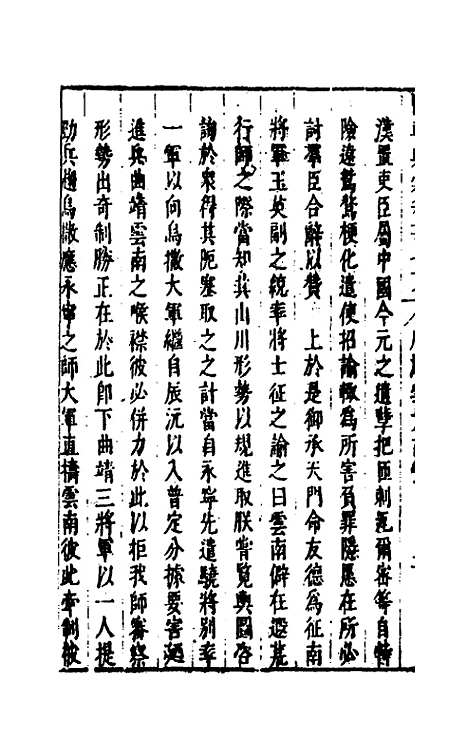 漢置吏臣屬中國今元之遺孽把匝剌瓦爾密等自恃
險遠桀驁梗化遣使招諭輒為所害負罪隱慝在所必
討羣臣合辭以贊　上於是御承天門命友德為征南
將軍玉英副之統率將士征之諭之曰雲南僻在遐荒
行師之際當知其山川形勢以規進取朕嘗覽輿圖咨
詢於衆得其阨塞取之之計當自永寧先遣驍將别率
一軍以向烏撒大軍繼自辰沅以入普定分據要害廼
進兵曲靖雲南之喉襟彼必併力於此以拒我師審察
形勢出奇制勝正在於此即下曲靖三將軍以一人提
勁兵趨烏撒應永寧之師大軍直擣雲南彼此牽制彼